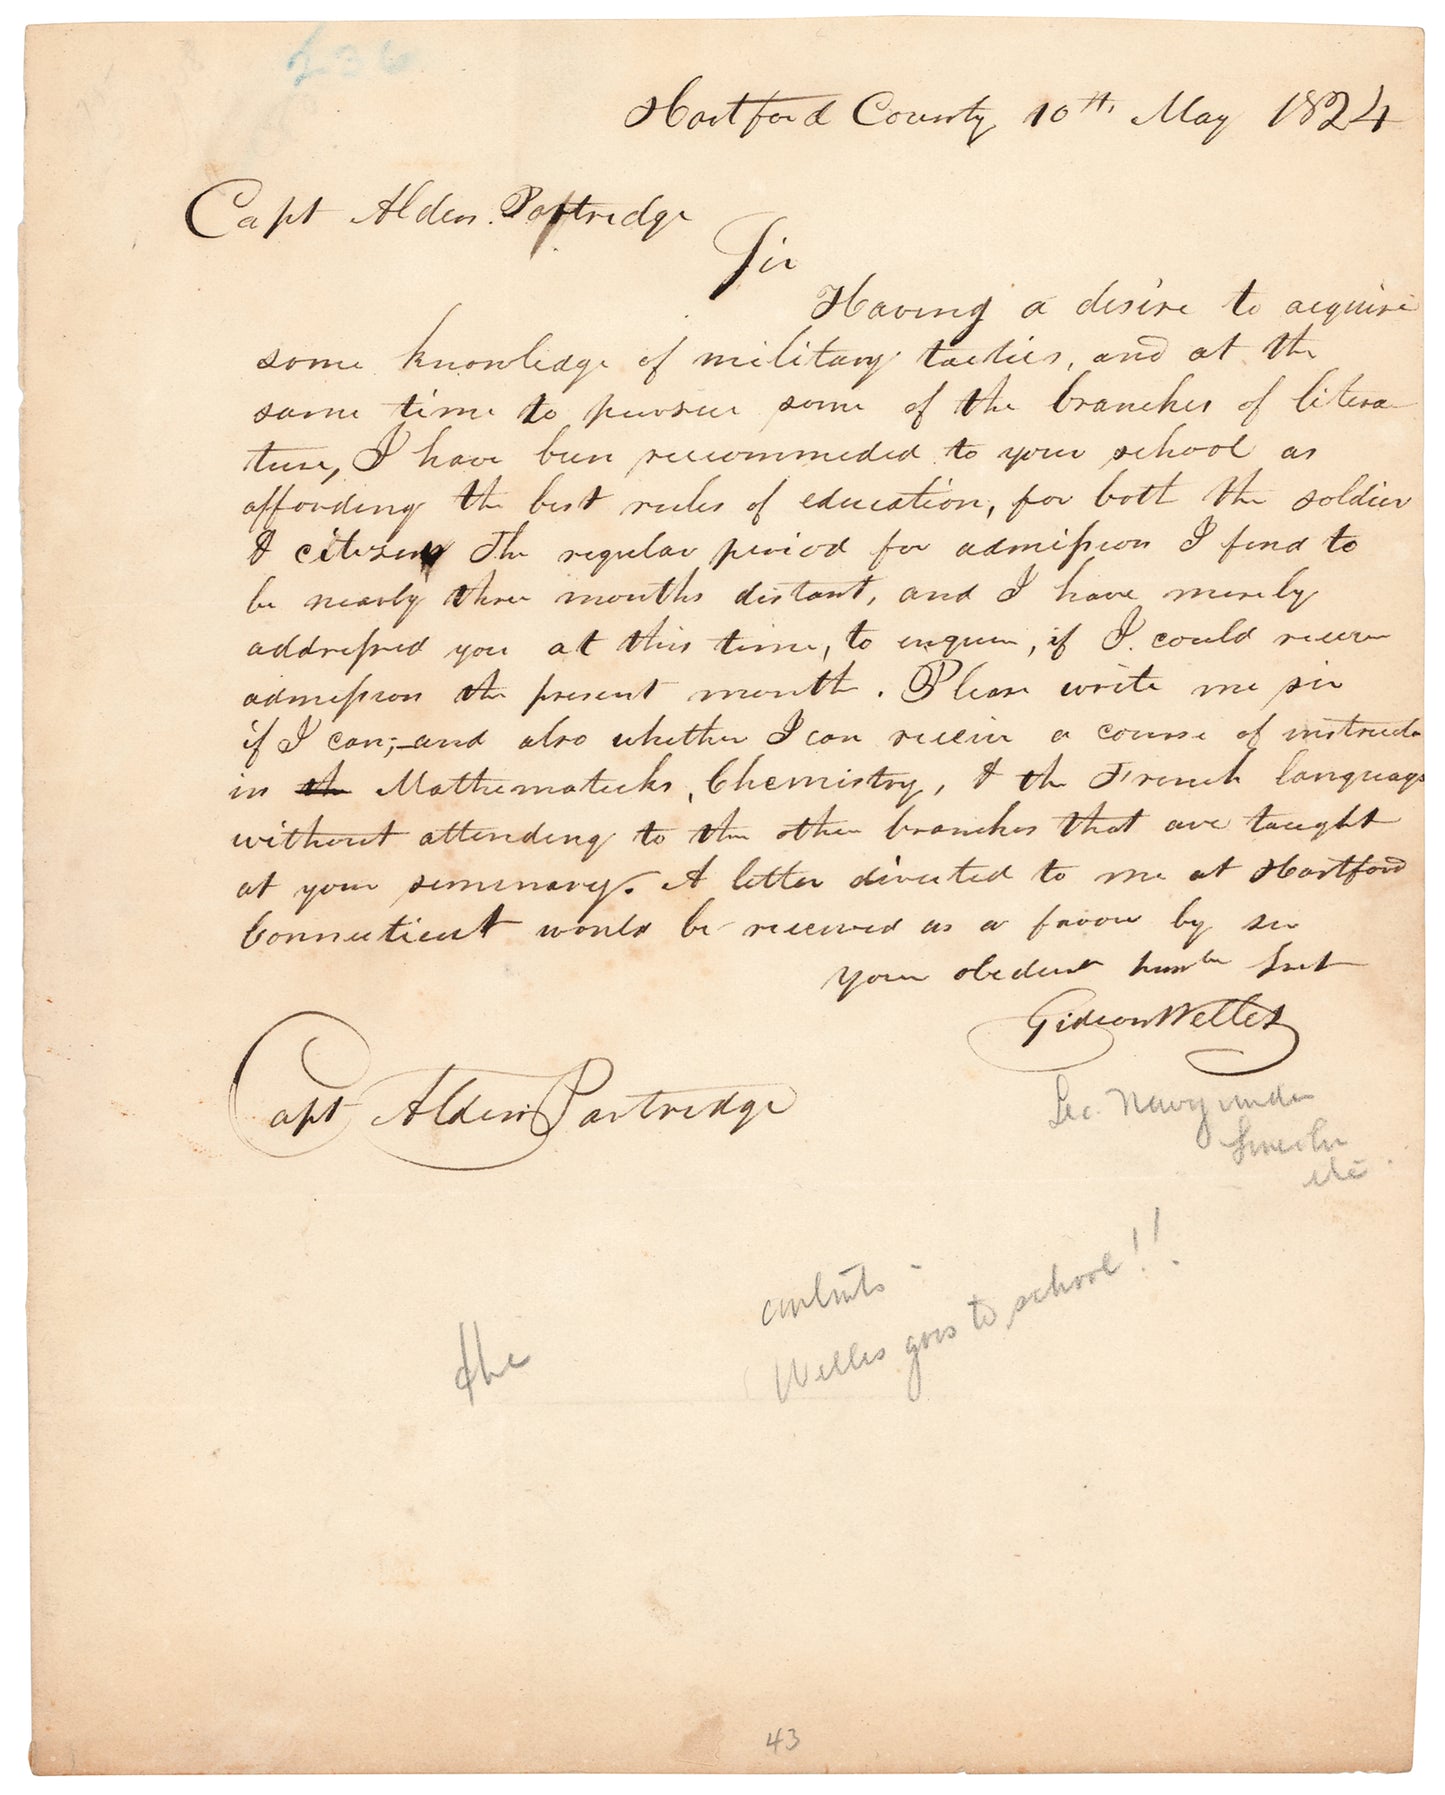 236
Hartford County 10th May 1824
Capt Alden Partridge
Sir
Having a desire to acquire
some knowledge of military tactics, and at the
same time to pursue some of the branches of litera
ture, I have been recommeded to your school as
affording the best rules of education, for both the soldier
& citizen The regular period for admission I find to
be nearly three months distant, and I have merely
addressed you at this time, to enquire, if I could receive
admission the present month. Please write me sir
if I can;—and also whether I can receive a course of instructn
in the Mathematicks, Chemistry, & the French language
without attending to the other branches that are taught
at your seminary. A letter directed to me at Hartford
Connecticut would be received as a favour by sir
your obedient humble Servt
Gideon Welles
Capt Alden Partridge
Sec. Navy under
Lincoln
etc.
contents -
Welles goes to school!!
the
43